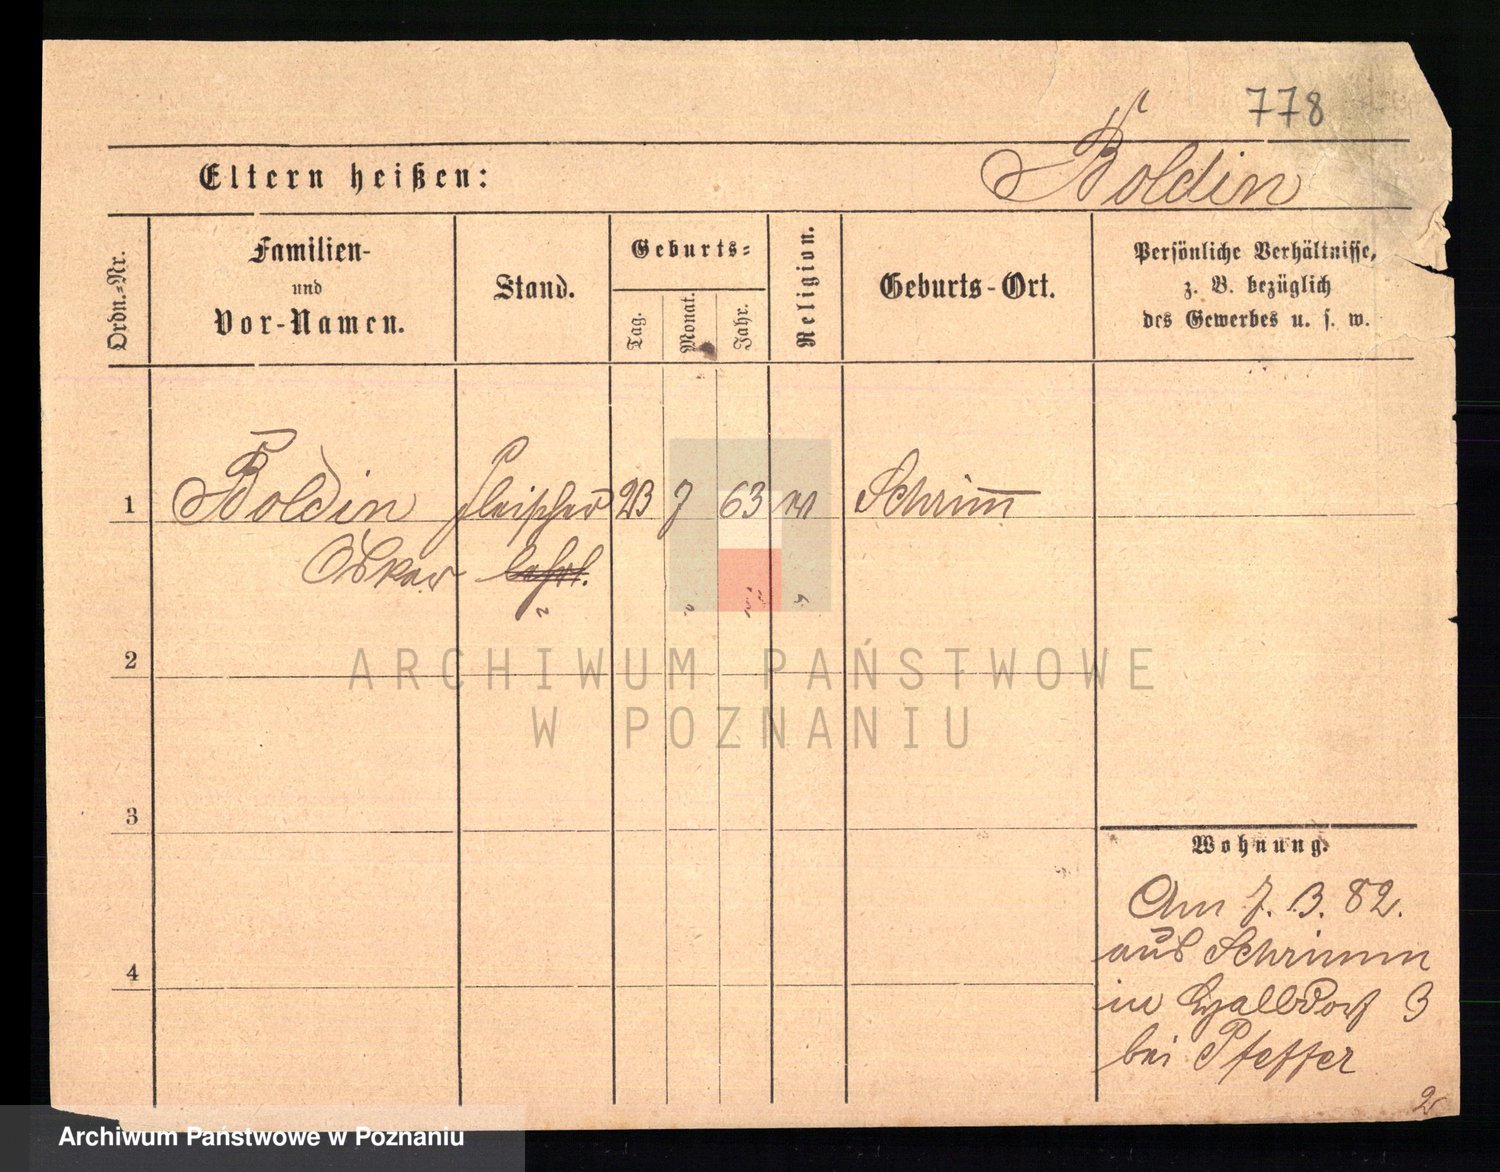 778
Eltern heißen:
Boldin
Ordn.-Nr.
Familien-
und
Vor-Namen.
Stand.
Geburts-
Tag.
Monat.
Jahr.
Religion.
Geburts-Ort.
Persönliche Verhältnisse,
z. B. bezüglich
des Gewerbes u. s. w.
1 Boldin Fleischer 23 7 63 Schrim̅
Oskar lehrl.
2
3
4
Wohnung.
Am 7. 3. 82.
aus Schrimm
in Halbdorf 3
bei Pfeffer
ARCHIWUM PAŃSTWOWE
W POZNANIU
Archiwum Państwowe w Poznaniu